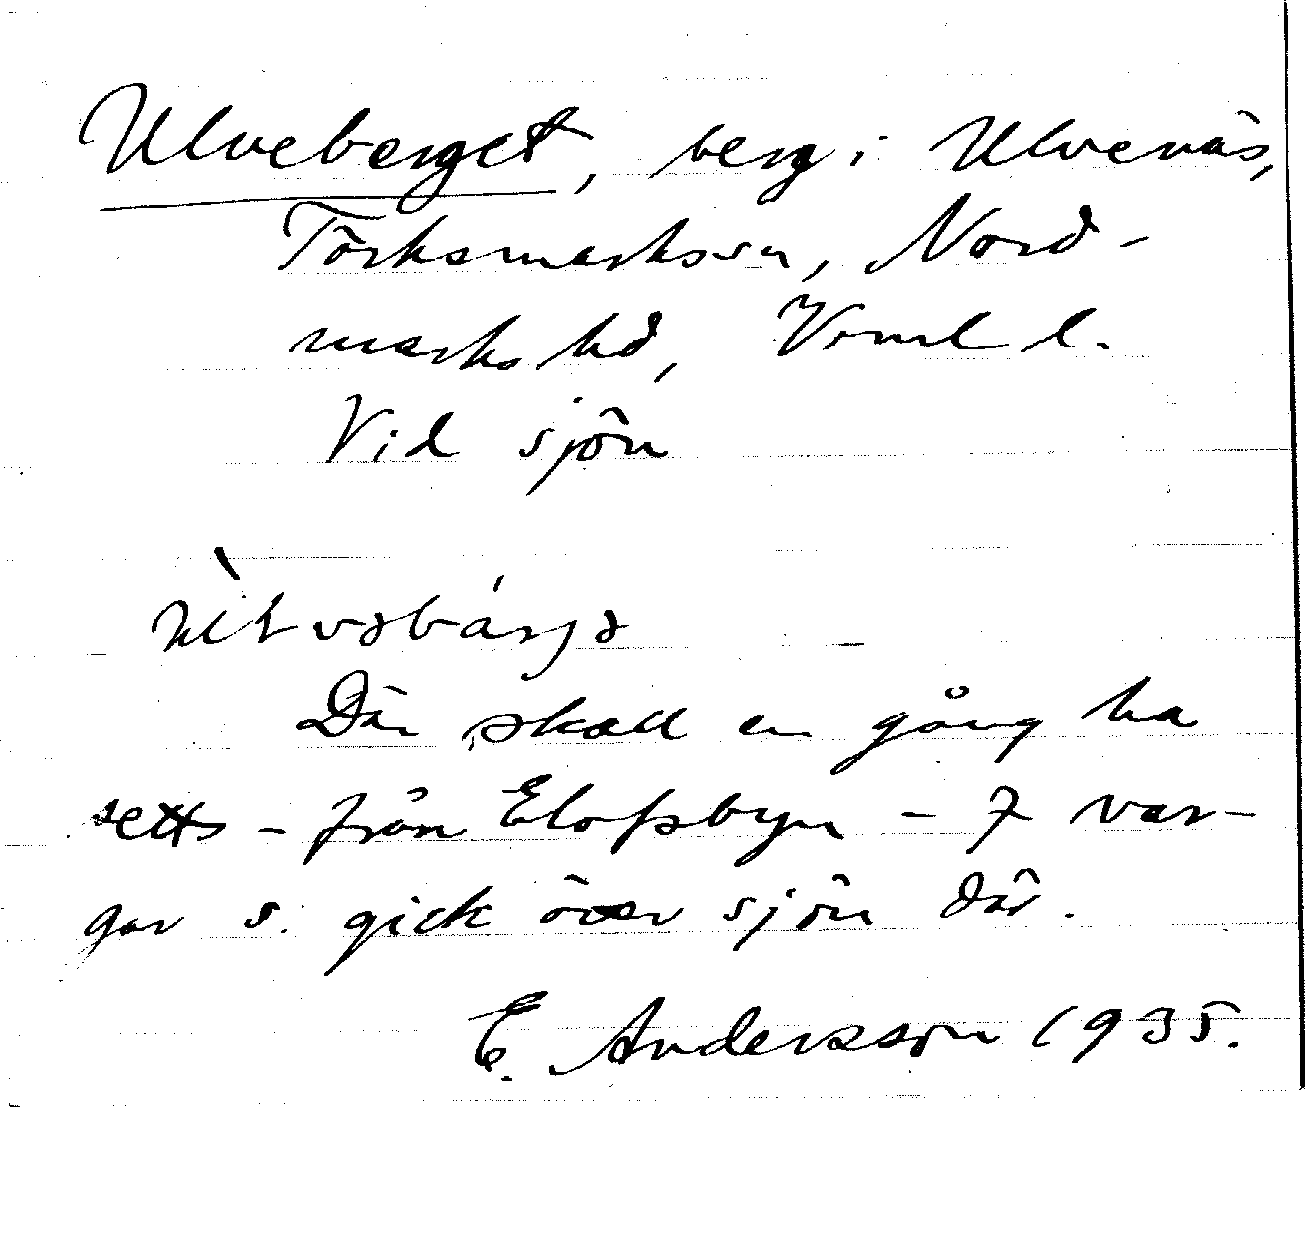 Ulveberget, berg i Ulvenäs,
Törksmarks sn, Nord-
marks hd, Vrml l.
Vid sjön
Där skall en gång ha
setts - från Elofsbyn - 7 var-
gar s. gick över sjön där.
E. Andersson 1935.